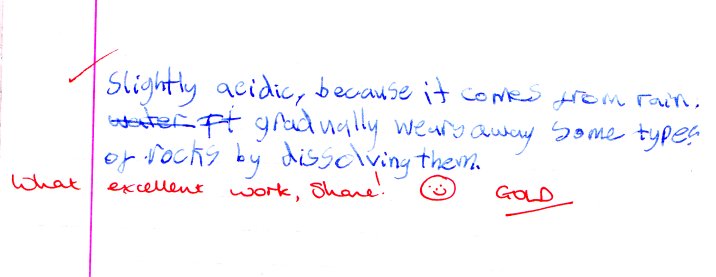 Slightly acidic, because it comes from rain.
water It gradually wears away some types
of rocks by dissolving them.
What excellent work, Shane! GOLD